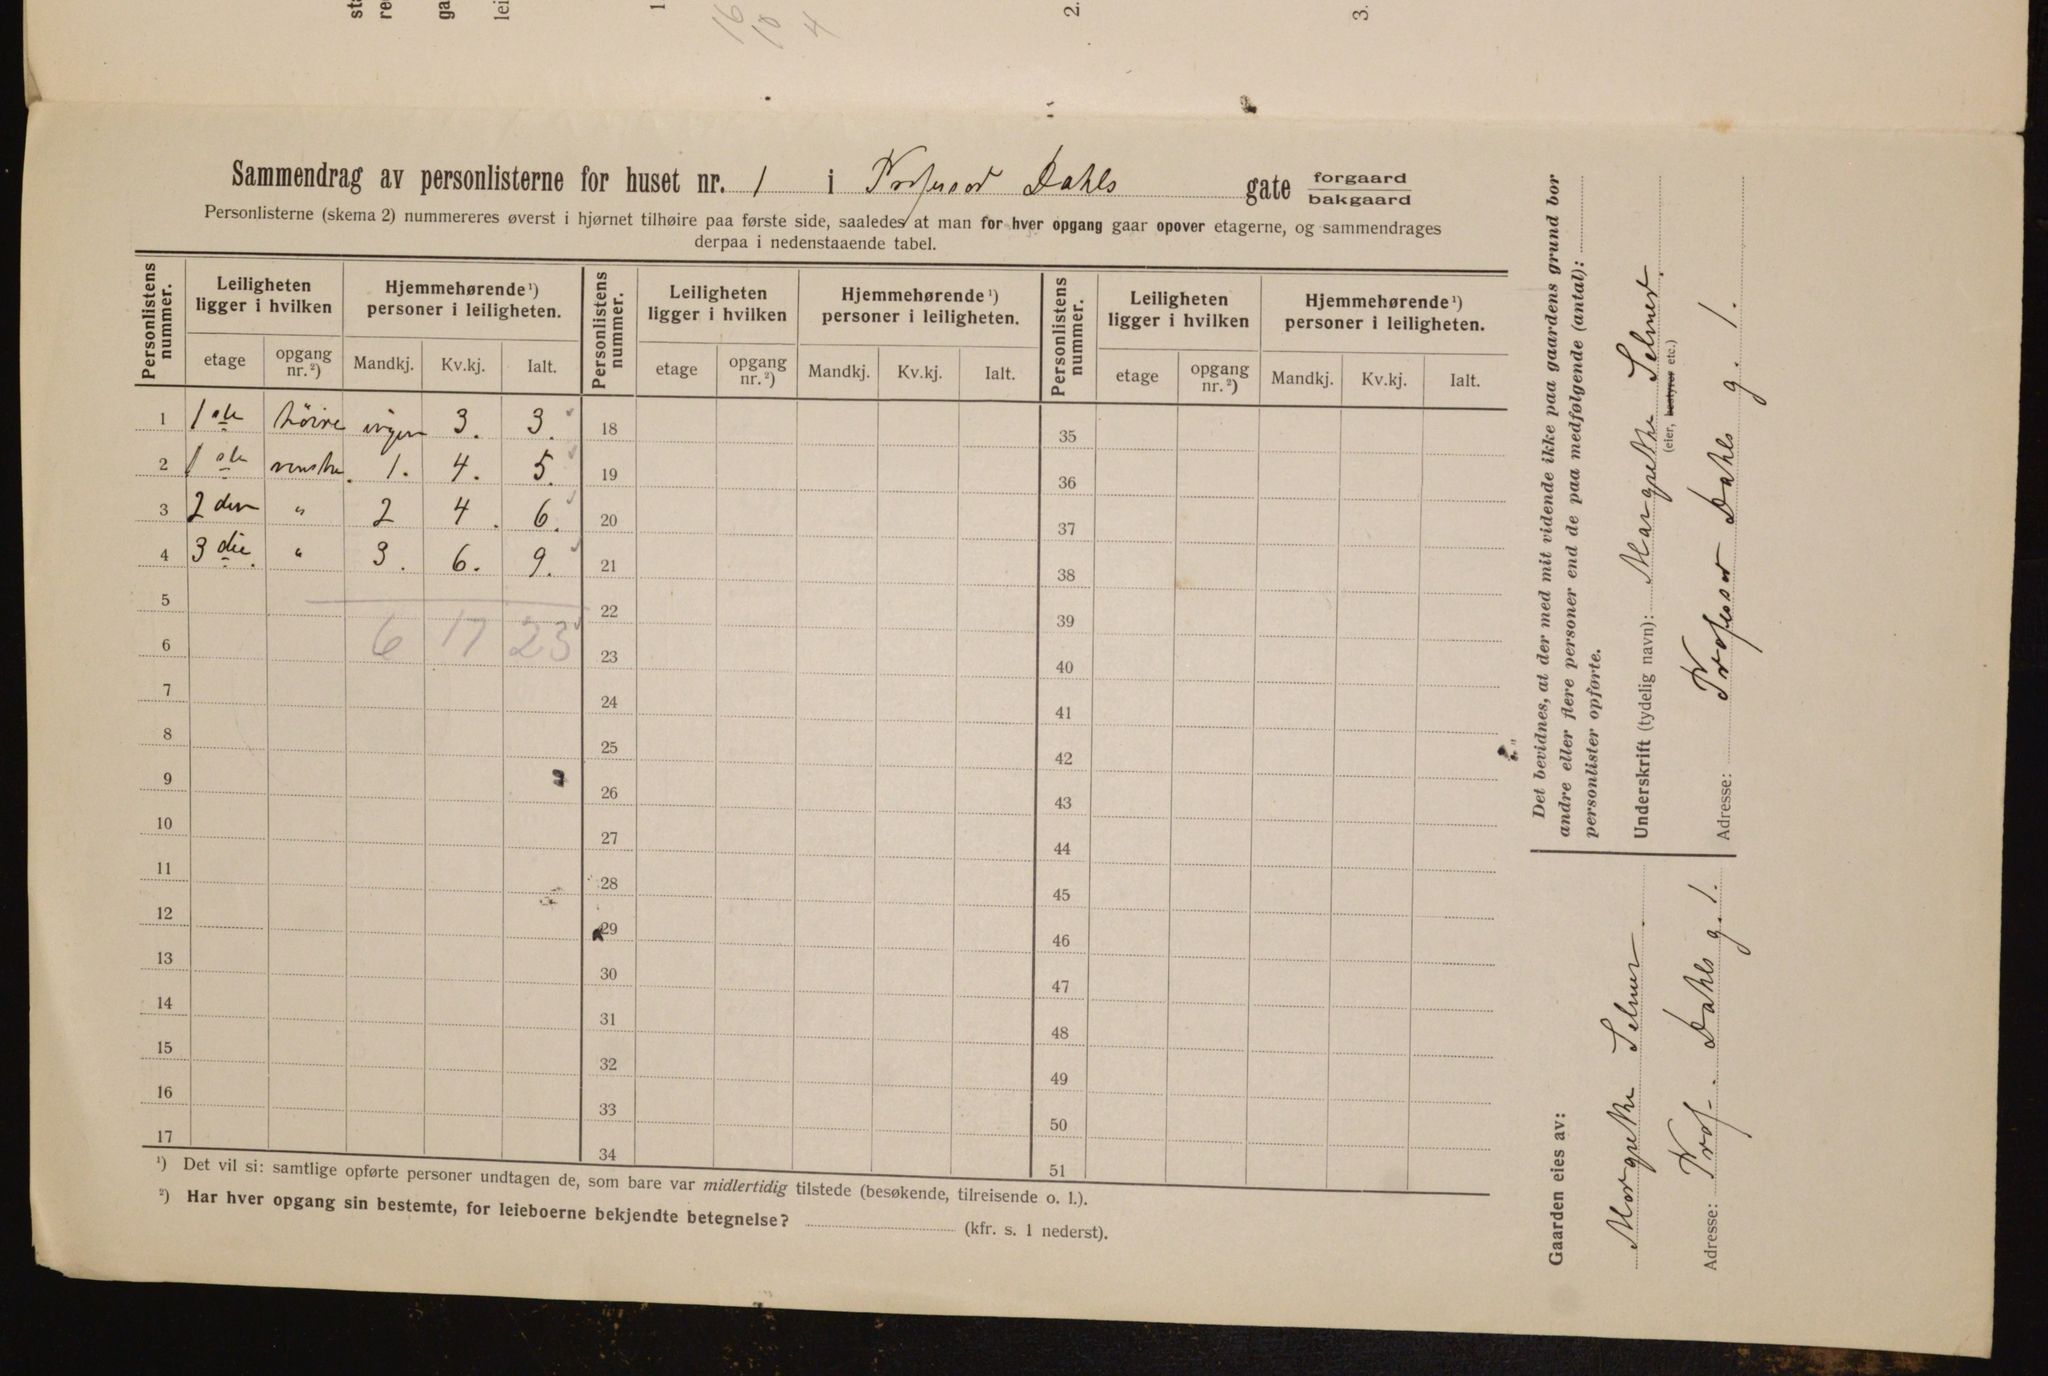 sta
re
ga
lei
1
16
10
4
2.
3.
Sammendrag av personlisterne for huset nr. 1 i Professor Dahls gate forgaard
bakgaard
Personlisterne (skema 2) nummereres øverst i hjørnet tilhøire paa første side, saaledes at man for hver opgang gaar opover etagerne, og sammendrages
derpaa i nedenstaaende tabel.
Personlistens nummer. Leiligheten ligger i hvilken Hjemmehørende ¹) personer i leiligheten. Personlistens nummer. Leiligheten ligger i hvilken Hjemmehørende ¹) personer i leiligheten. Personlistens nummer. Leiligheten ligger i hvilken Hjemmehørende ¹) personer i leiligheten.
etage opgang nr. ²) Mandkj. Kv.kj. Ialt. etage opgang nr. ²) Mandkj. Kv.kj. Ialt. etage opgang nr. ²) Mandkj. Kv.kj. Ialt.
1 1ste høire ingen 3. 3. 18 35
2 1ste venstre. 1. 4. 5. 19 36
3 2den " 2 4. 6. 20 37
4 3die. " 3. 6. 9. 21 38
5 22 39
6 6 17 23 23 40
7 24 41
8 25 42
9 26 43
10 27 44
11 28 45
12 29 46
13 30 47
14 31 48
15 32 49
16 33 50
17 34 51
¹) Det vil si: samtlige opførte personer undtagen de, som bare var midlertidig tilstede (besøkende, tilreisende o. l.).
²) Har hver opgang sin bestemte, for leieboerne bekjendte betegnelse? (kfr. s. 1 nederst).
Det bevidnes, at der med mit vidende ikke paa gaardens grund bor
andre eller flere personer end de paa medfølgende (antal):
personlister opførte.
Underskrift (tydelig navn): Margrethe Selmer.
(eier, bestyrer etc.)
Adresse: Professor Dahls g. 1.
Gaarden eies av:
Margrethe Selmer.
Adresse: Prof. Dahls g. 1.